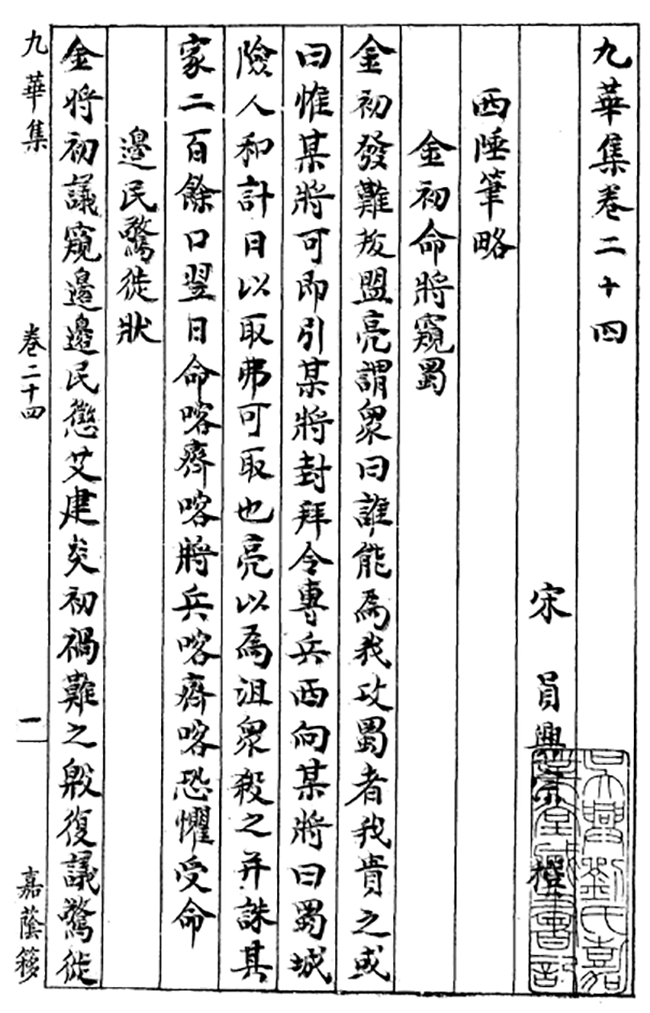 九華集卷二十四
宋 員興宗 撰
西陲筆略
金初命將窺蜀
金初發難叛盟亮謂衆曰誰能爲我攻蜀者我貴之或
曰惟某將可即引某將封拜令專兵西向某將曰蜀城
險人和計日以取弗可取也亮以爲沮衆殺之并誅其
家二百餘口翌日命喀齊喀將兵喀齊喀恐懼受命
邊民驚徙狀
金將初議窺邊邊民懲艾建炎初禍難之殷復議驚徙
九華集
卷二十四
一
嘉蔭簃